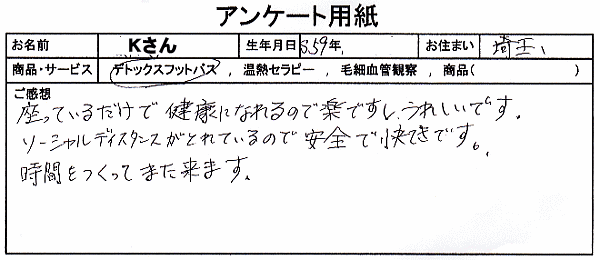 アンケート用紙
お名前 Kさん 生年月日 S59年. お住まい 埼玉
商品・サービス デトックスフットバス , 温熱セラピー , 毛細血管観察 , 商品( )
ご感想
座っているだけで健康になれるので楽ですし、うれしいです.
ソーシャルディスタンスがとれているので安全で快てきです。
時間をつくってまた来ます.